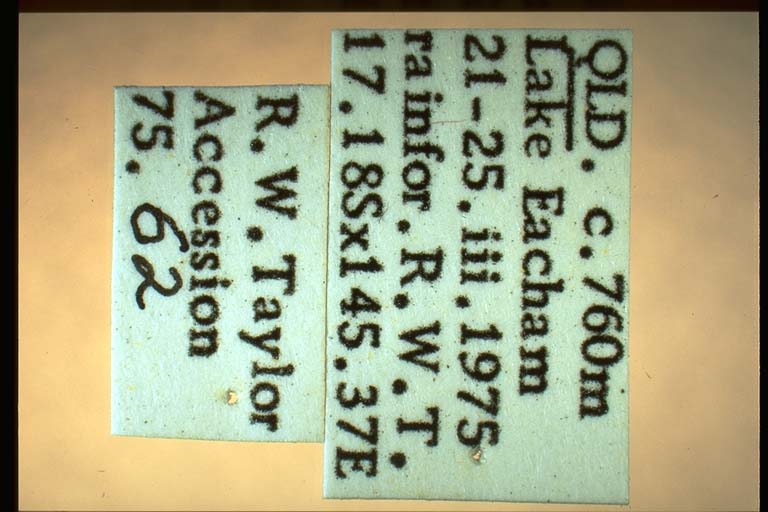 QLD. c.760m
Lake Eacham
21-25.iii.1975
rainfor. R.W.T.
17.18Sx145.37E
R.W.Taylor
Accession
75. 62